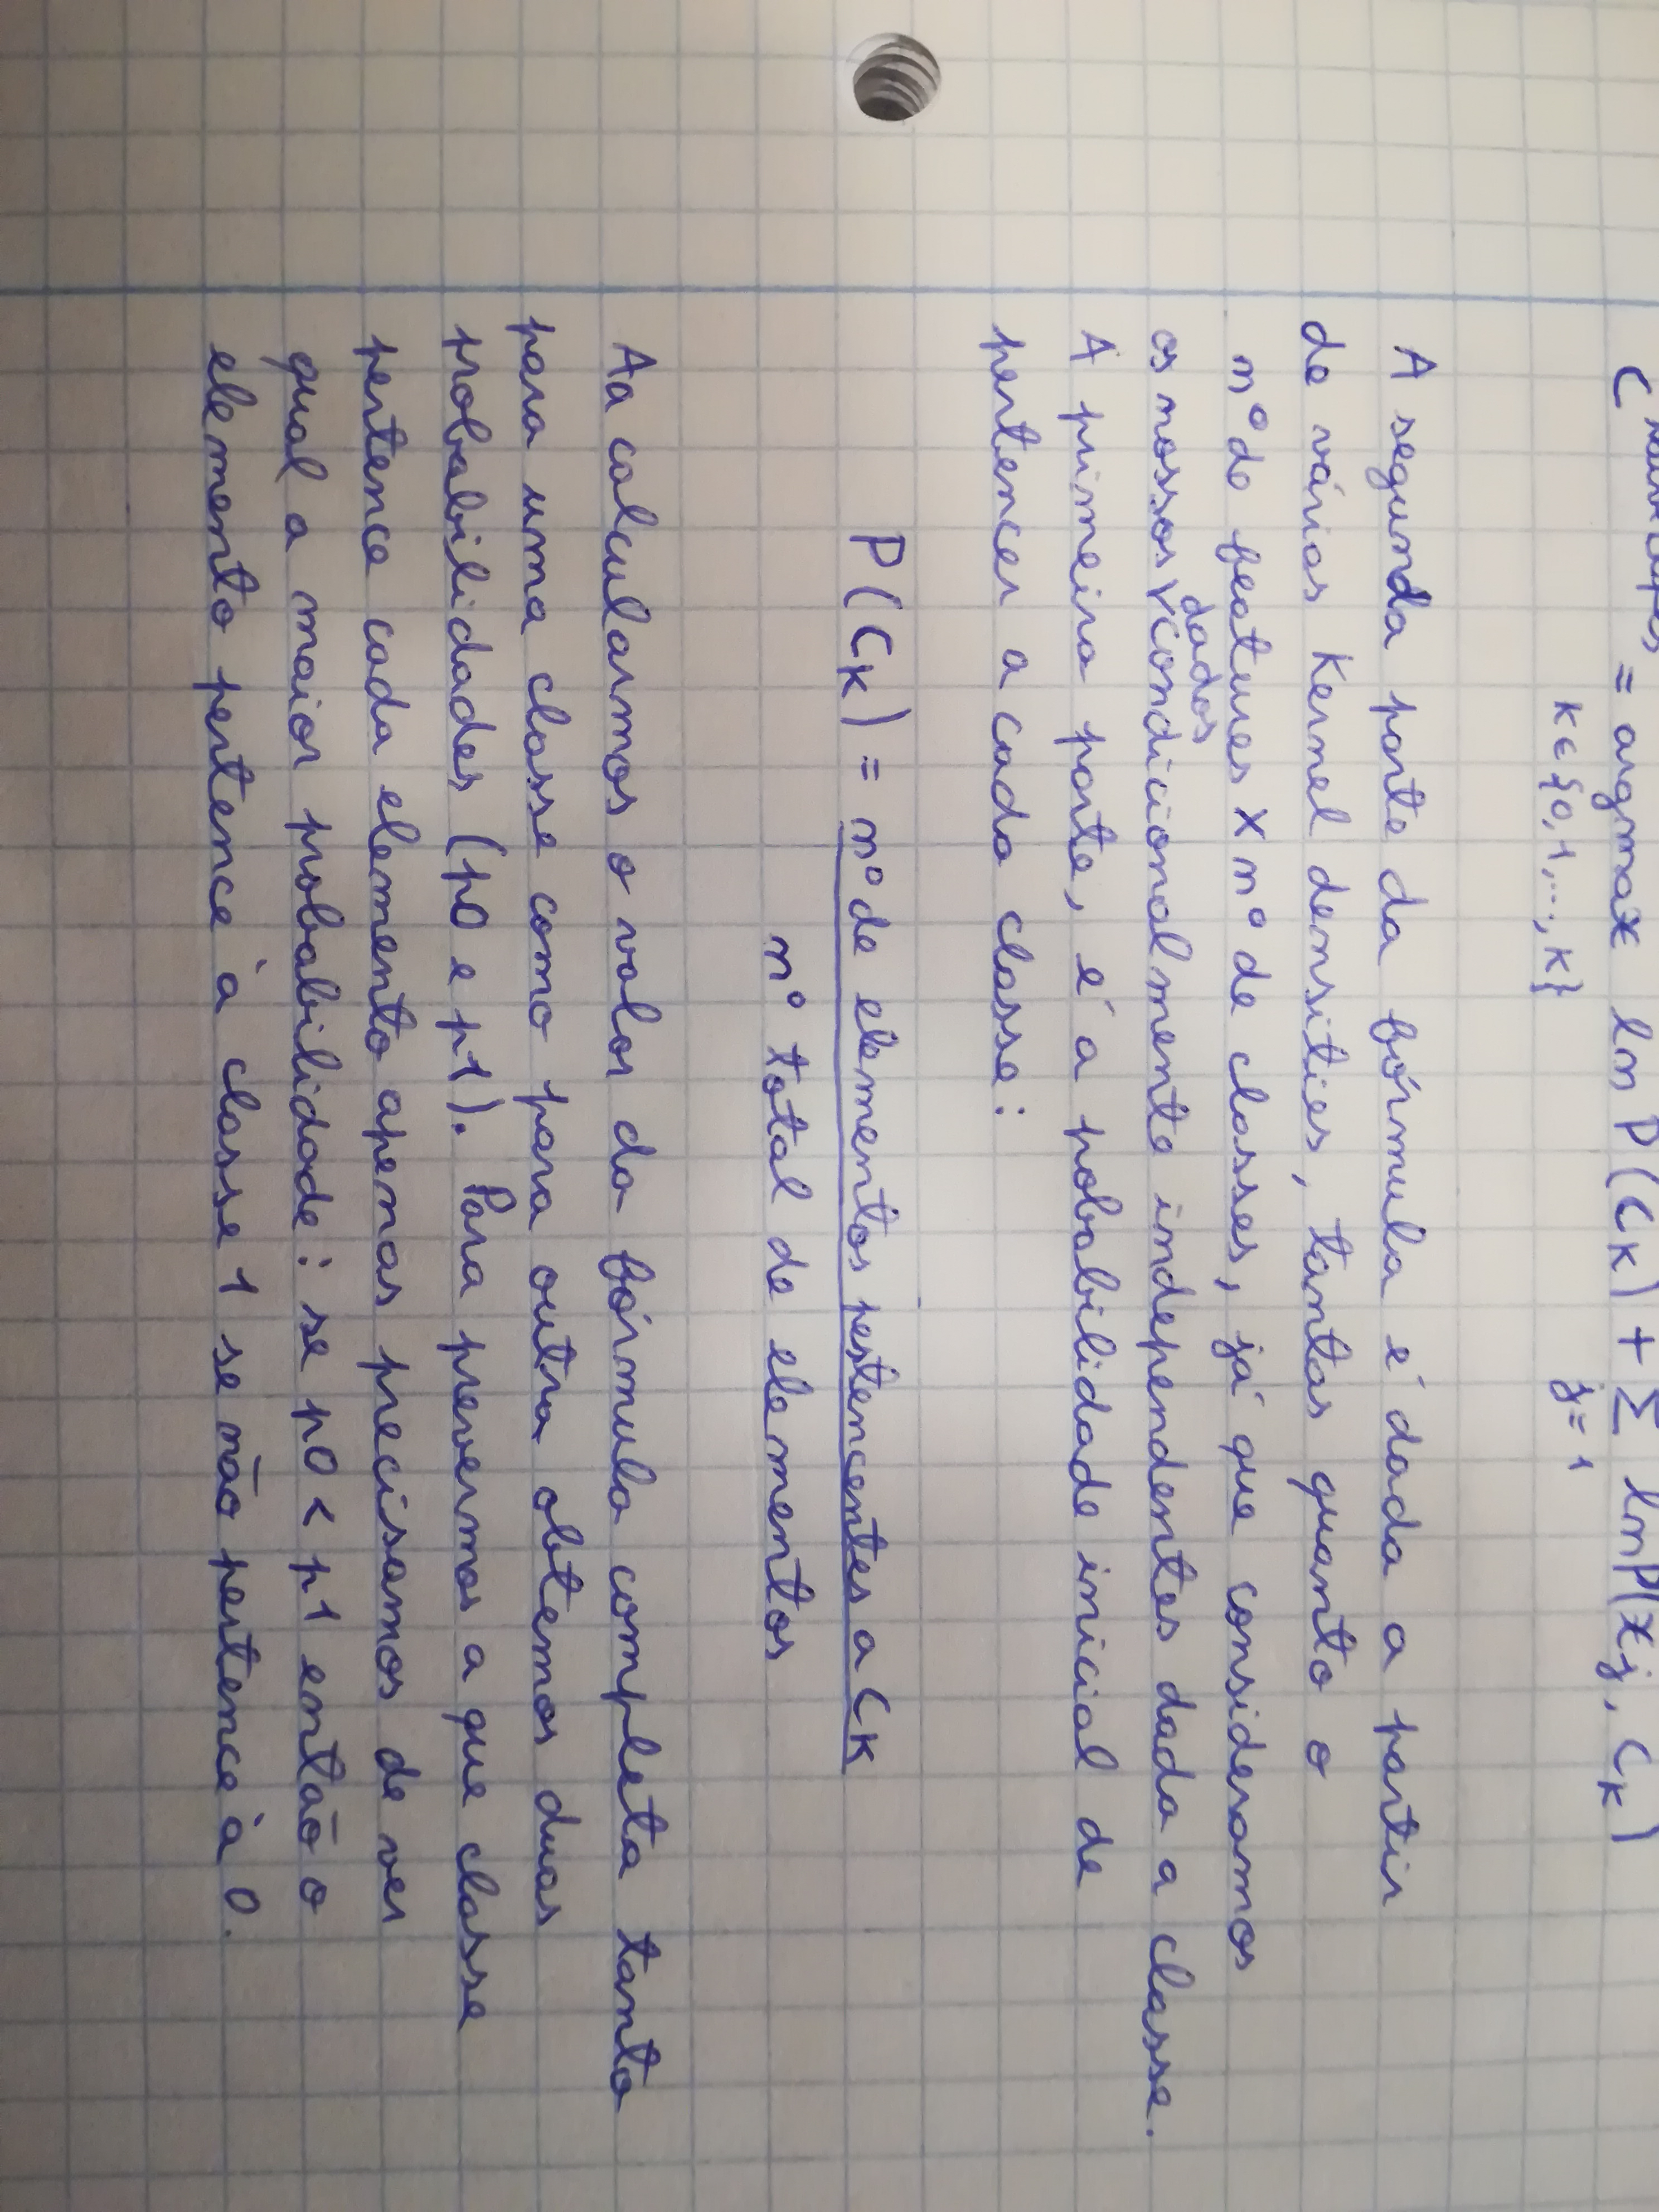 C = argmax ln P(CK) + Σ ln P(xj, CK)
K ∈ {0,1,...,K} j=1
A segunda parte da fórmula é dada a partir
de vários Kernel densities, tantas quanto o
nº de features x nº de classes, já que consideramos
dados
os nossos condicionalmente independentes dada a classe.
A primeira parte, é a pobabilidade inicial de
pertencer a cada classe:
P(CK) = nº de elementos pertencentes a CK
nº total de elementos
Aa calcularmos o valor da fórmula completa tanto
para uma classe como para outra obtemos duas
probabilidades (p0 e p1). Para prevermos a que classe
pertence cada elemento apenas precisamos de ver
qual a maior probabilidade: se p0 < p1 então o
elemento pertence à classe 1 se não pertence à 0.